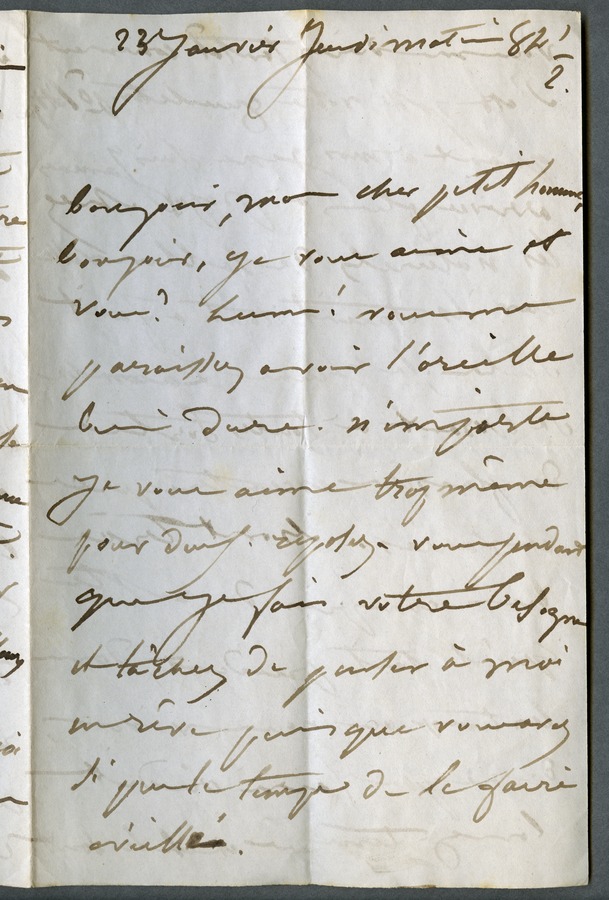 23 Janvier Jeudi matin 8h 1/2.
bonjour, mon cher petit homme,
bonjour, je vous aime et
vous? hum! vous me
paraissez avoir l'oreille
bien dure. n'importe
je vous aime trop même
pour deux. reposez-vous pendant
que je fais votre besogne
et tâchez de penser à moi
en rêve puisque vous avez
si peu le temps de le faire
éveillé.